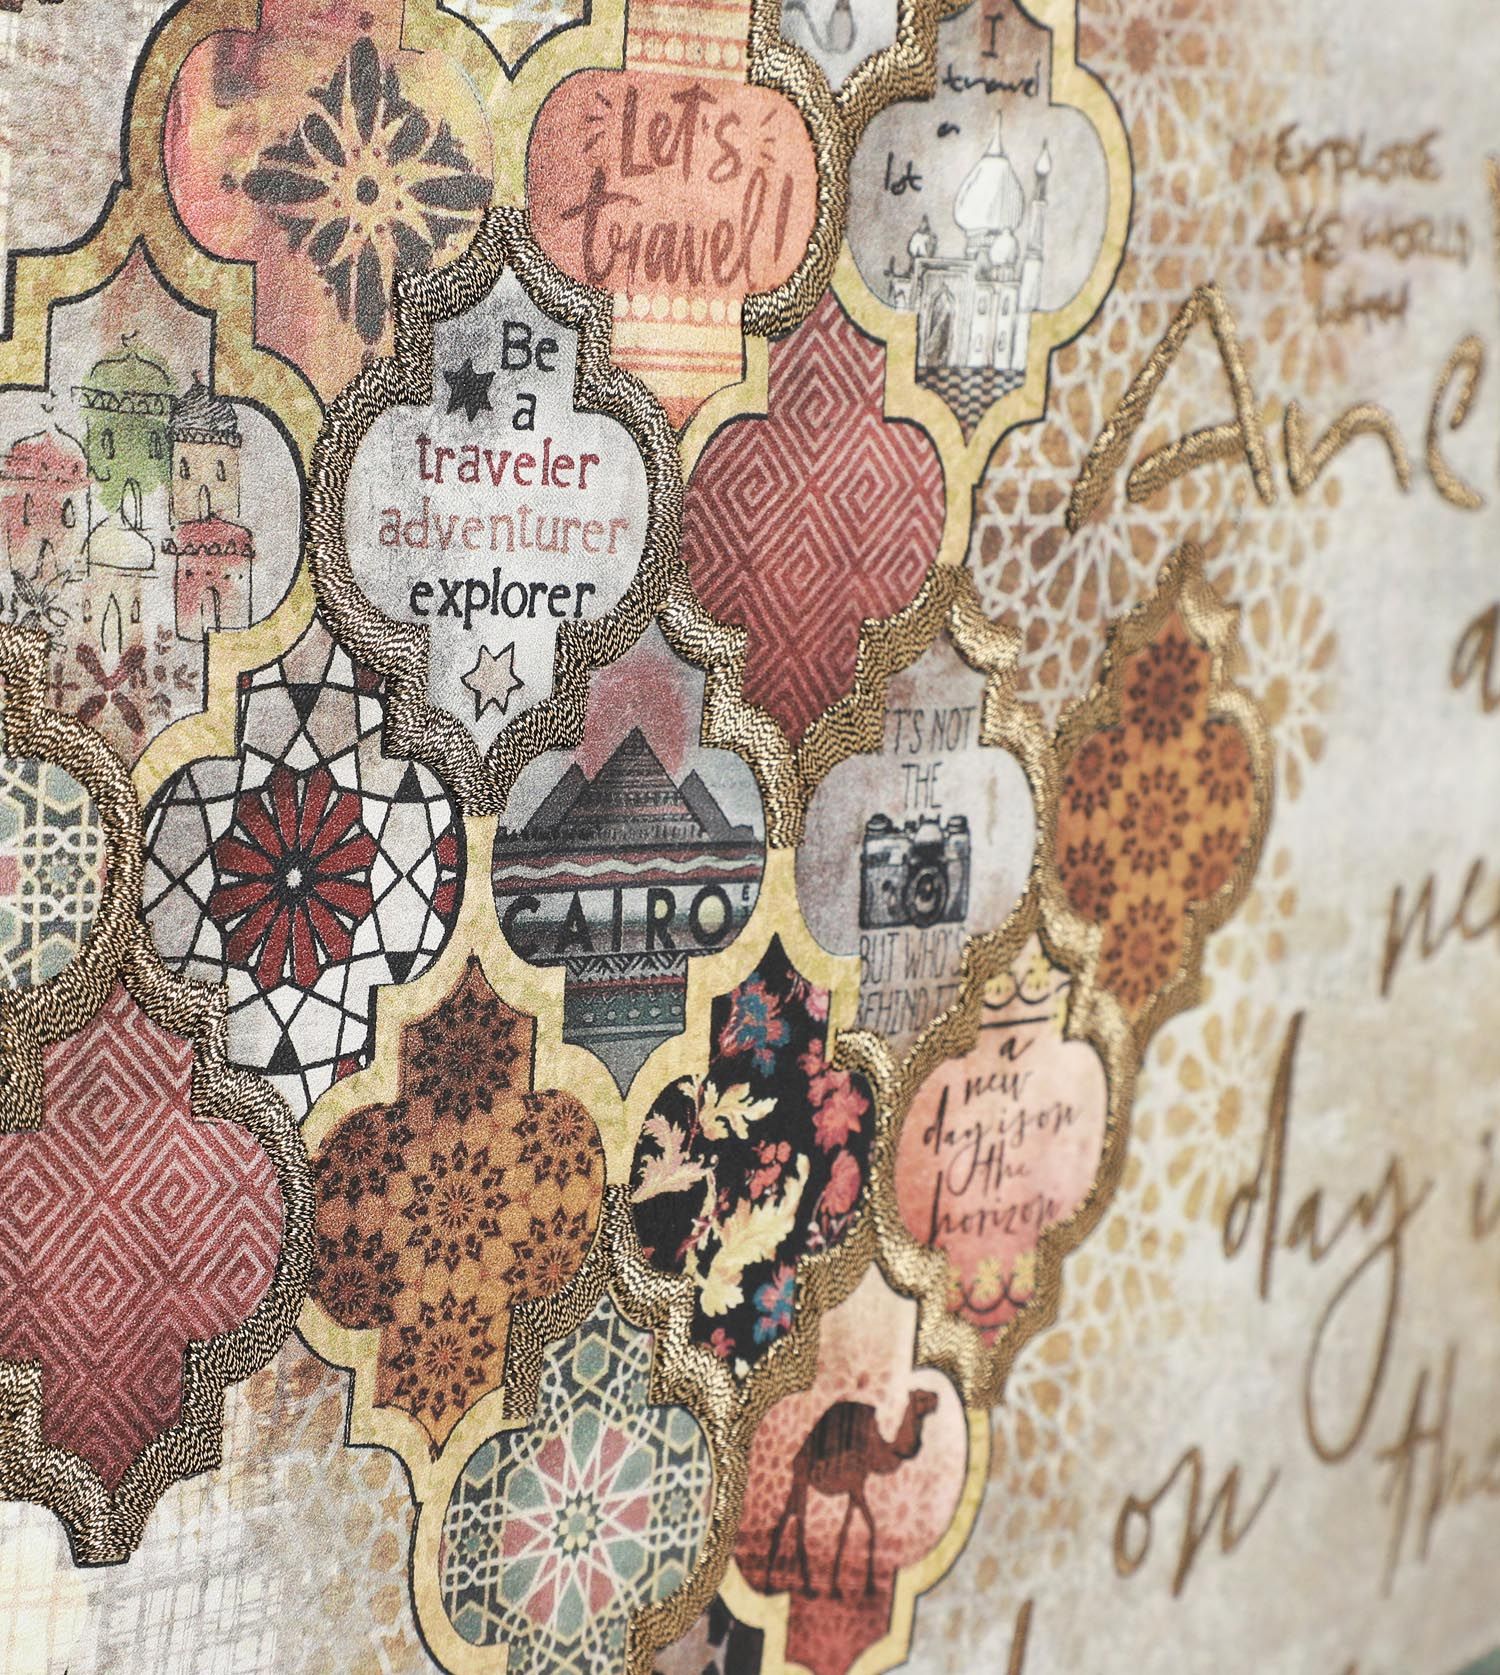 Let's
travel!
I
travel
a
lot
EXPLORE
THE WORLD
Be
a
traveler
adventurer
explorer
CAIRO
IT'S NOT
THE
BUT WHO'S
BEHIND IT
a
new
day is on
the
horizon
day i
on